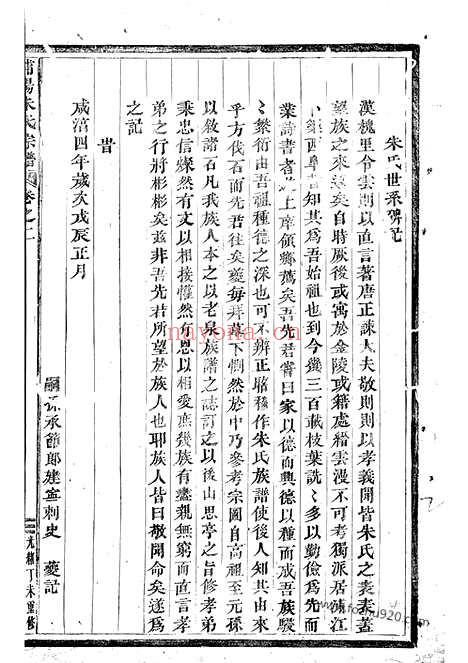 朱氏世系碑記
漢槐里令雲則以直言著唐正諫大夫敬則則以孝義聞皆朱氏之表表蓋
望族之來遠矣自時厥後或寓於金陵或籍處縉雲漫不可考獨派居東江
知其為吾始祖也到今幾三百載枝葉詵〻多以勤儉為先
業詩書者上庠領鄉薦矣吾先君嘗曰家以德而興德以種而成吾族駸
〻繁衍由吾祖種德之深也可不辨正昭穆作朱氏族譜使後人知其由來
乎方伐石而先君往矣夔每拜真下惻然於中乃參考宗圖自高祖至元孫
以敘諸石凡我族人本之以老泉族譜之誌訂之以後山思亭之旨修孝弟
秉忠信燦然有文以相接懽然有恩以相愛庶幾族有盡親無窮而直言孝
弟之行將彬彬焉茲非吾先君所望於族人也耶族人皆曰敬聞命矣遂為
之記
旹
咸淳四年歲次戊辰正月
嗣孫承節郎建寧刺史 夔記
浦陽朱氏宗譜 卷之一
光緒丁未重修
nayona.cn